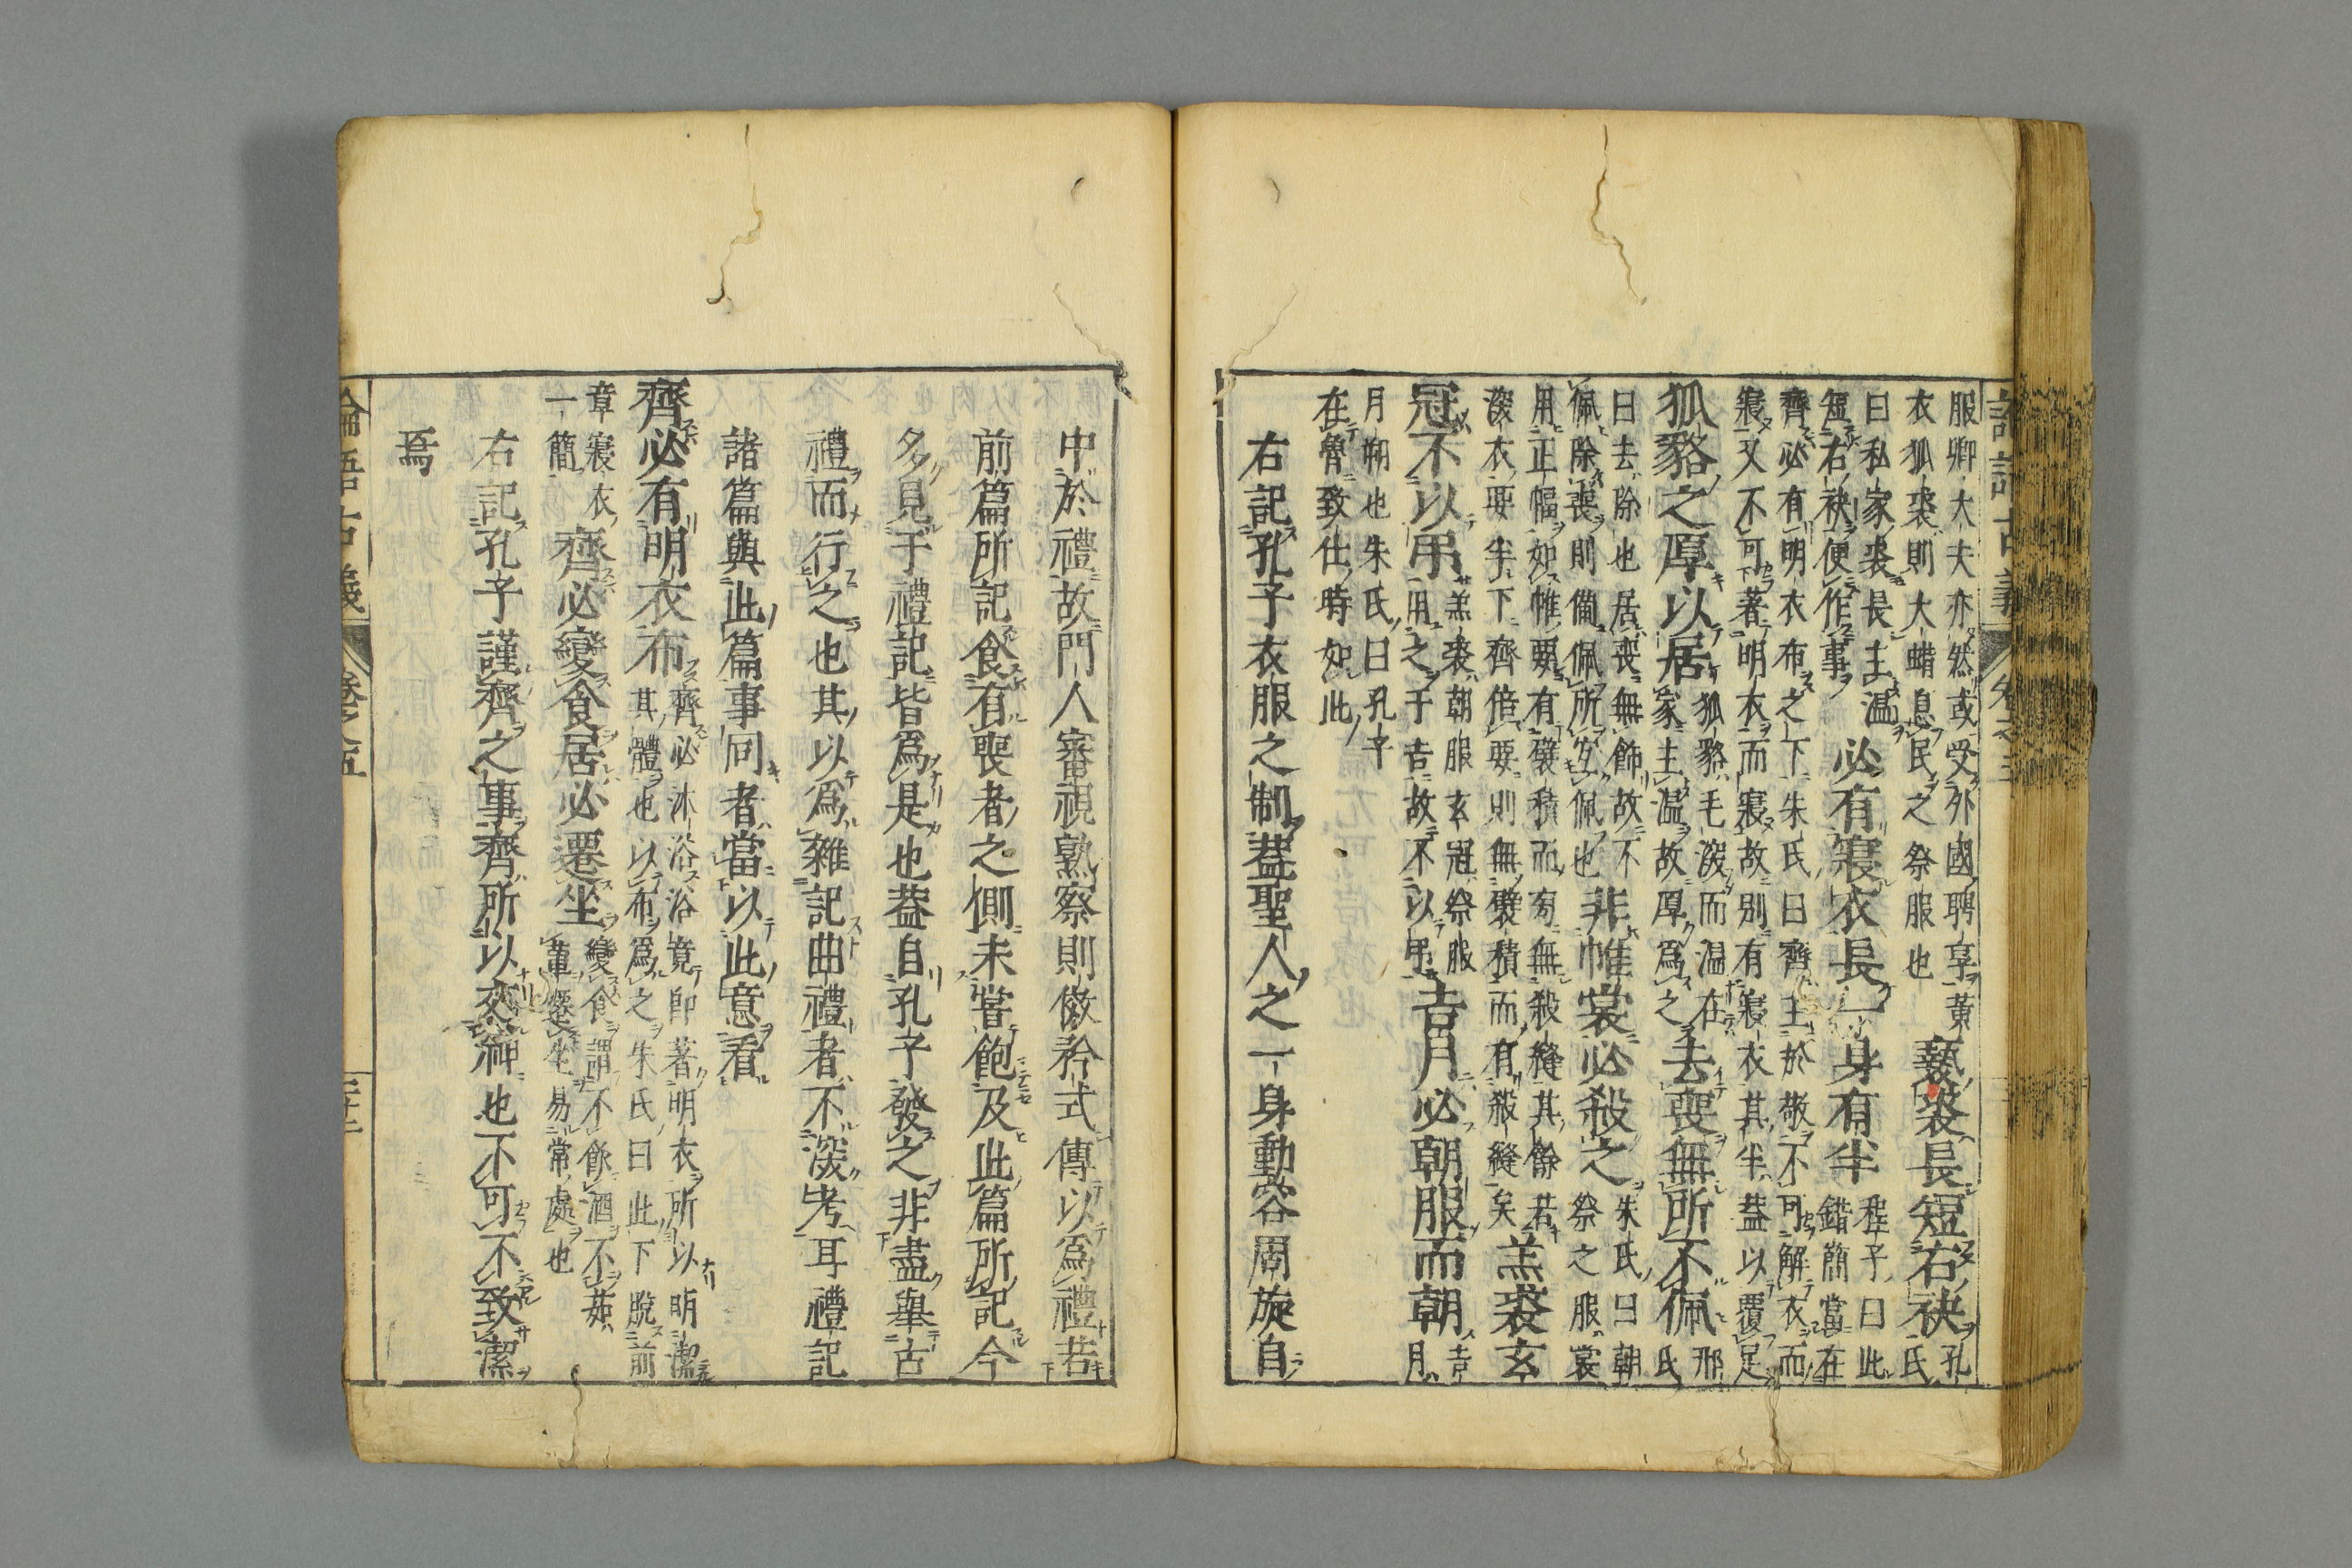 服卿大夫亦然或受外國聘享黃
衣狐裘則大蜡息民之祭服也
褻裘長短右袂
孔氏
曰私家裘長主温
短右袂便作事
必有寢衣長一身有半
程子曰此
錯簡當在
齊必有明衣布之下朱氏曰齊主於敬不可解衣而
寢又不可著明衣而寢故別有寢衣其半蓋以覆足
狐貉之厚以居
狐貉毛深而温在
家主温故厚爲之
去喪無所不佩
邢氏
曰去除也居喪無飾故不
佩除喪則備佩所宜佩也
非帷裳必殺之
朱氏曰朝
祭之服裳
用正幅如帷要有襞積而旁無殺縫其餘若
深衣要半下齊倍要則無襞積而有殺縫矣
羔裘玄
冠不以弔
羔裘朝服玄冠祭服
用之于吉故不以弔
吉月必朝服而朝
吉月
月朔也朱氏曰孔子
在魯致仕時如此
右記孔子衣服之制蓋聖人之一身動容周旋自
中於禮故門人審視熟察則倣矜式傳以爲禮若
前篇所記食有喪者之側未嘗飽及此篇所記今
多見于禮記皆爲是也蓋自孔子發之非盡舉古
禮而行之也其以爲雜記曲禮者不深考耳禮記
諸篇與此篇事同者當以此意看
齊必有明衣布
齊必沐浴浴竟卽著明衣所以明潔
其體也以布爲之朱氏曰此下脫前
章寢衣
一簡
齊必變食居必遷坐
變食謂不飲酒不茹
葷遷坐易常處也
右記孔子謹齊之事齊所以交神也不可不致潔
焉
論語古義
卷之五